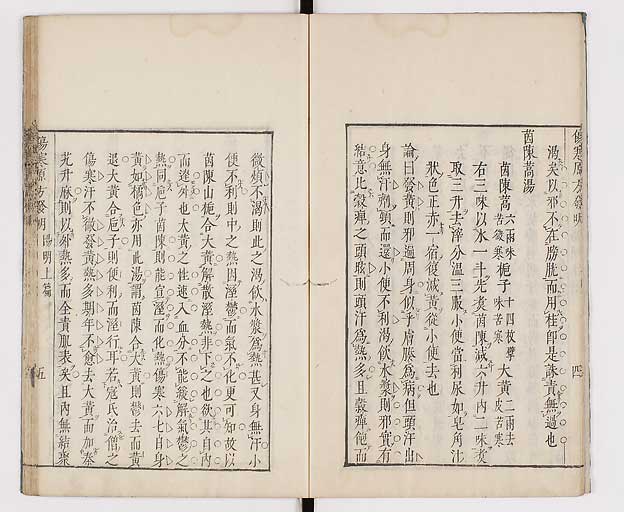 傷寒原方發明
四
渴矣以邪不在膀胱而用桂卽是誅責無過也
茵陳蒿湯
茵陳蒿六兩味苦微寒 梔子十四枚擘味苦寒 大黃二兩去皮苦寒
右三味以水一斗先煑茵陳減六升內二味煑
取三升去滓分溫三服小便當利尿如皂角汁
狀色正赤一宿復減黃從小便去也
論曰發黃則邪遍周身似乎膚腠爲病但頭汗出
身無汗劑頸而還小便不利渴飲水漿則邪實有
結意比穀癉之頭眩則頭汗爲熱多且穀癉飽而
微煩不渴則此之渴飲水漿爲熱甚又身無汗小
便不利則中之熱因溼鬱而氣不化更可知故以
茵陳山梔合大黃解散溼熱非下之也欲其自內
而達外也大黃之性速入血分不能緩解氣鬱之
熱同梔子茵陳則能宣溼而化熱傷寒六七日身
黃如橘色亦用此湯謂茵陳合大黃則鬱去而黃
退大黃合梔子則便利而溼行耳若寇氏治僧之
傷寒汗不徹發黃熱多期年不愈去大黃而加秦
艽升麻則以邪熱多而全責肌表矣且內無結聚
傷寒原方發明
陽明上篇
五